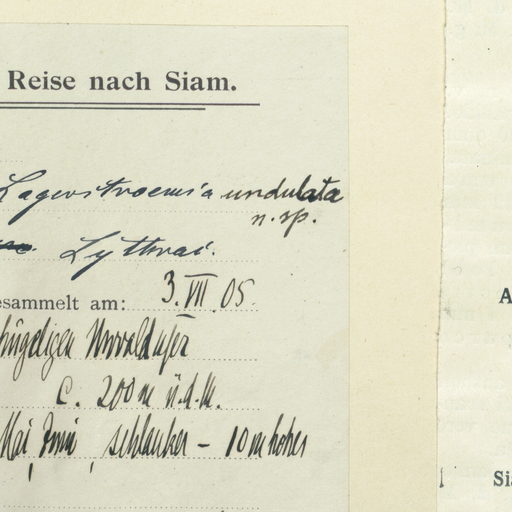 Reise nach Siam.
Lagerstroemia undulata
n. sp.
Lythrac.
esammelt am: 3. VII. 05.
hügeligen Urwaldufer
c. 200 m ü. d. M.
Mai, Juni, schlanker – 10 m hoher
A
Si